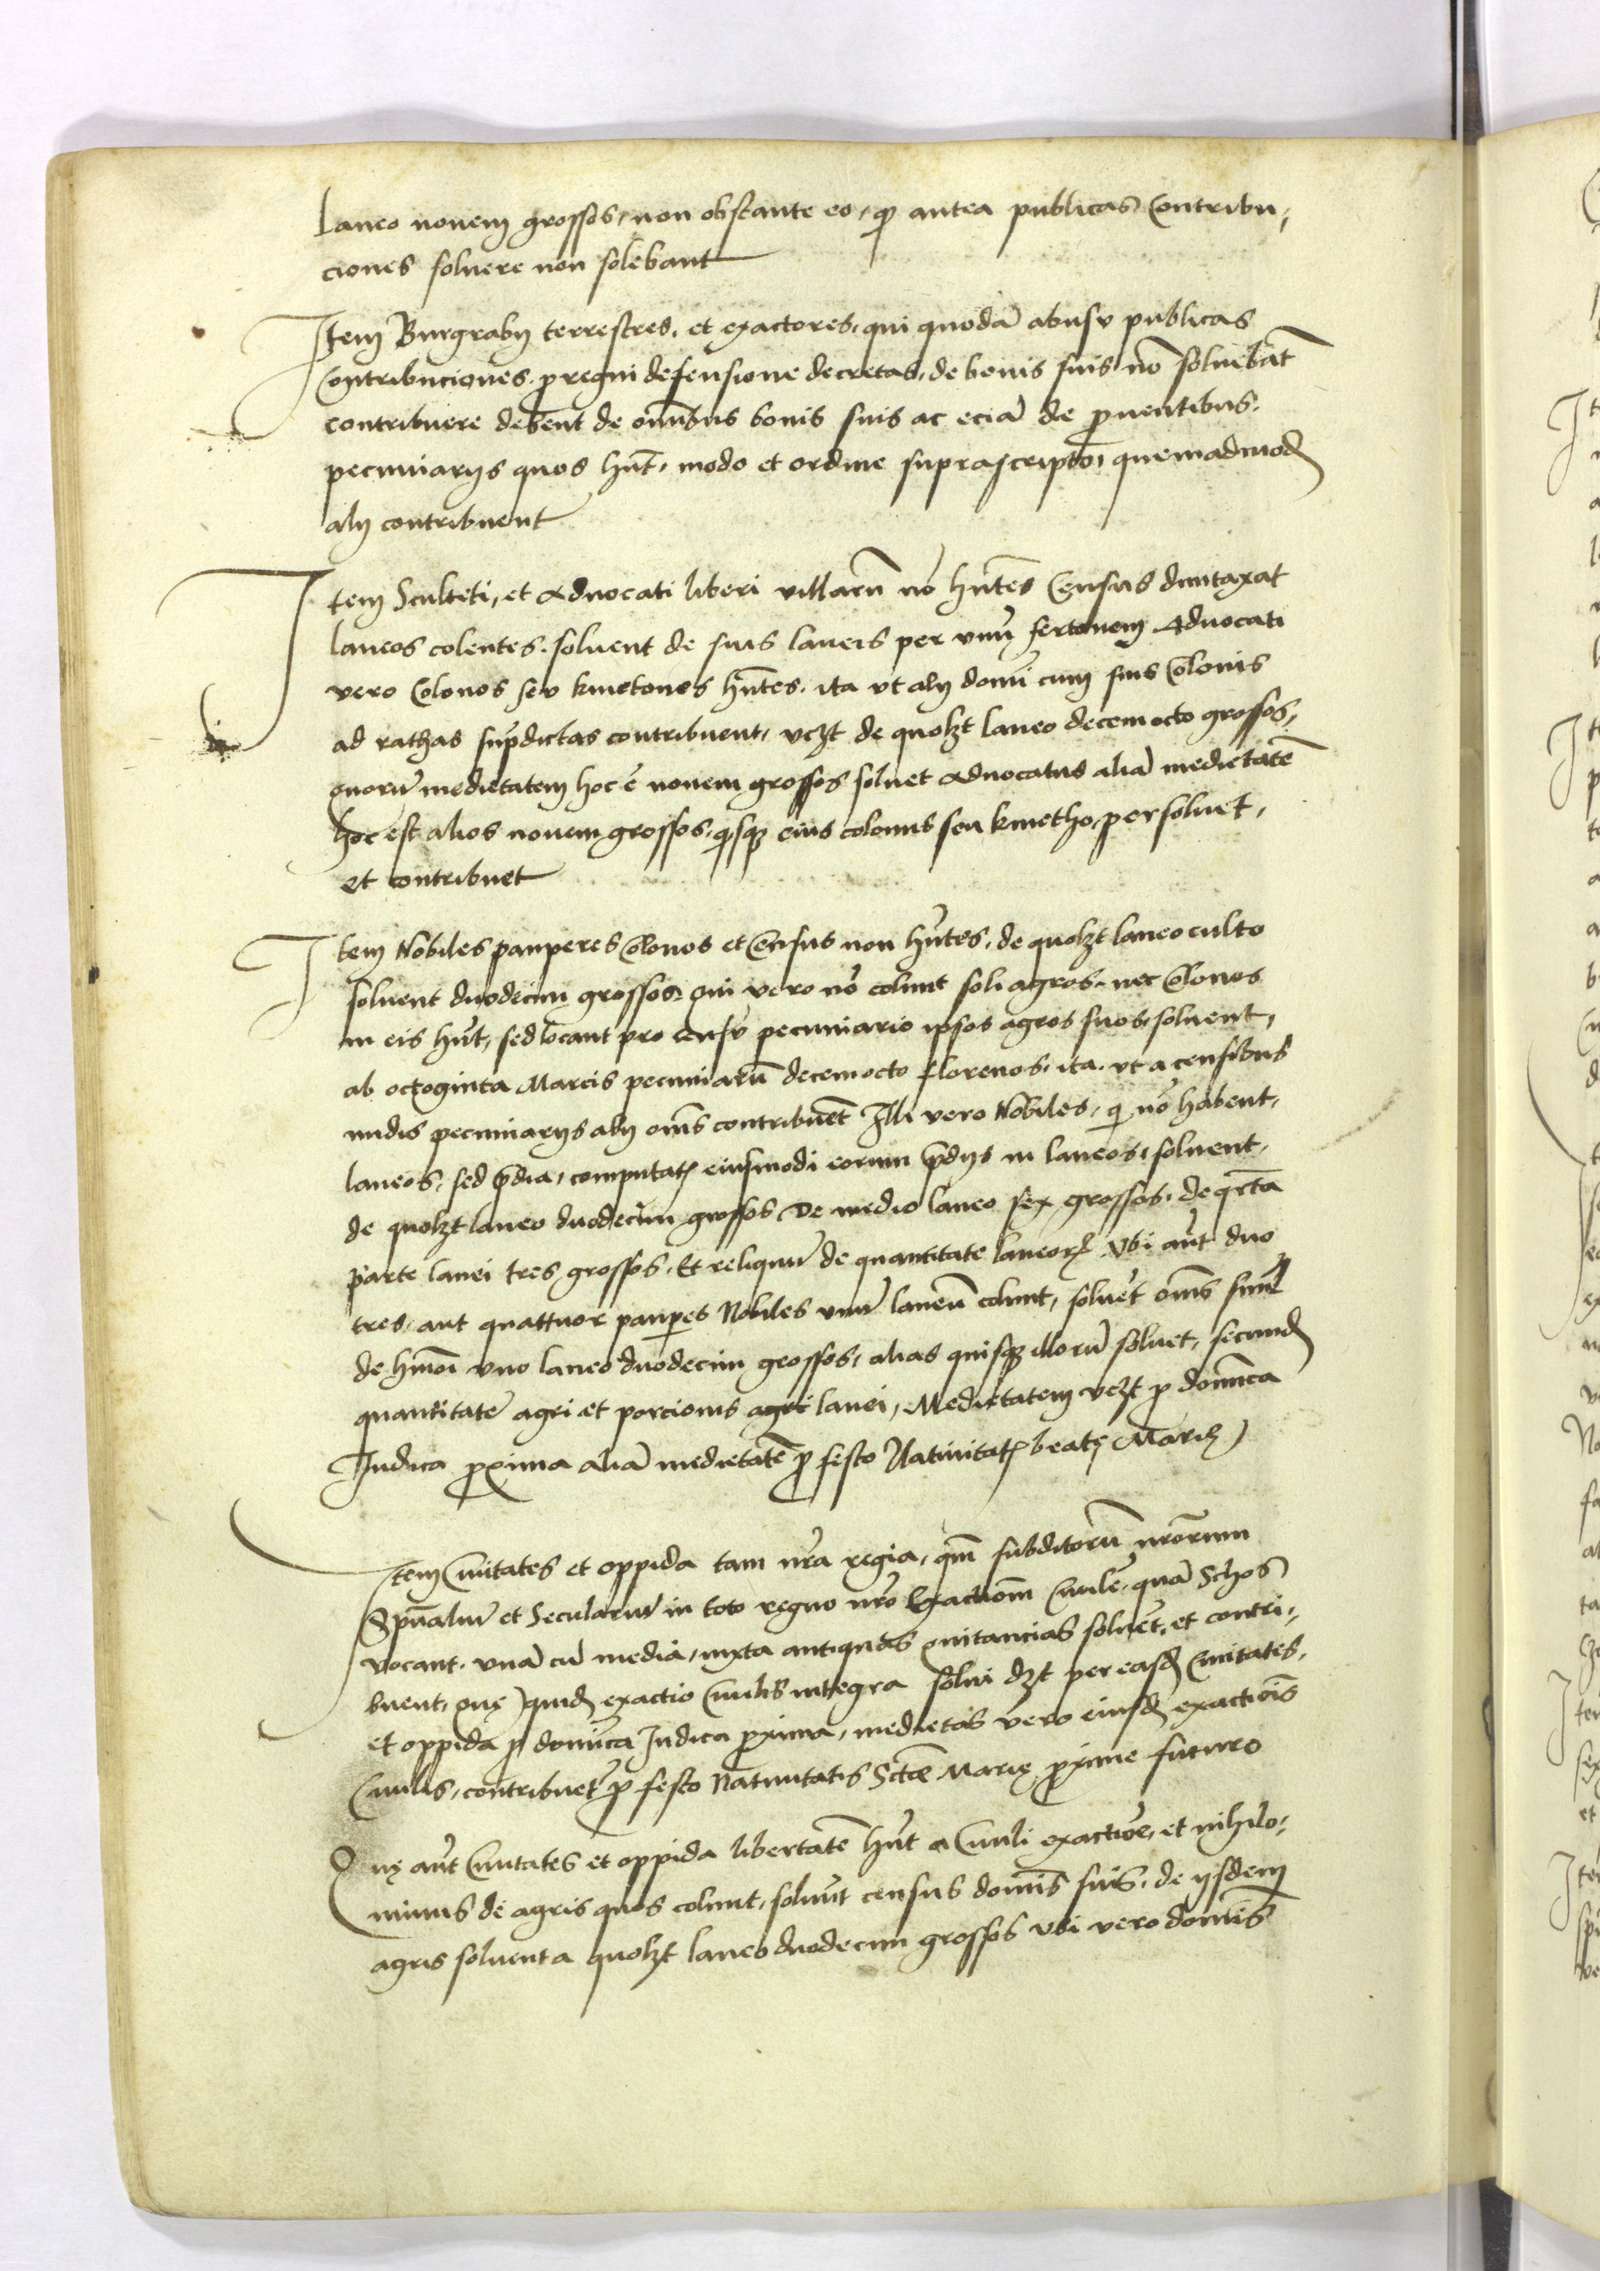 laneo novem grossos, non obstante eo, qͦ antea publicas Contribu-
ciones soluere non solebant
Item Burgrabij terrestres, et exactores, qui quodā abusu publicas
Contribuciones ꝓ regni defensione decretas, de bonis suis nō soluebāt
contribuere debent de oībus bonis suis ac eciā de ꝓuentibus
pecuniarijs quos hn̄t, modo et ordine suprascripto, quemadmodꝫ
alij contribuent
Item Sculteti, et Aduocati liberi villarū nō hn̄tes Census duntaxat
laneos colentes, soluent de suis laneis per vnū fertonem Aduocati
vero Colonos seu kmetones hn̄tes, ita vt alij domī cum suis Colonis
ad rathas sup̄dictas contribuent, vcꝫt de quolꝫt laneo decem octo grossos,
quorū medietatem hoc ē novem grossos soluet Aduocatus aliā medietatē
hoc est alios novem grossos, qͥsqꝫ eius colonus seu kmetho, persoluet,
et contribuet
Item Nobiles pauperes Colonos et Census non hn̄tes, de quolꝫt laneo culto
soluent duodecim grossos, Qui vero nō colunt soli agros, nec Colonos
in eis hn̄t, sed locant pro censu pecuniario ipsos agros suos, soluent,
ab octoginta Marcis pecuniarū decem octo florenos, ita, vt a censibus
nudis pecuniarijs alij om̄s contribuēt Illi vero Nobiles, qͥ nō habent,
laneos, sed p̄dia, computatꝭ eiusmodi eorum p̄dijs in laneos, soluent,
de quolꝫt laneo duodecim grossos De medio laneo sex grossos, de qͣrta
parte lanei tres grossos, Et reliquū de quantitate laneorꝝ Vbi aūt duo
tres, aut quattuor pauꝑes Nobiles vnū laneū colunt, soluēt om̄s simul
de hmōi vno laneo duodecim grossos, alias quisqꝫ illorū soluet, secundꝫ
quantitatē agri et porcionis agri lanei, Medietatem vcꝫt ꝓ domīca
Iudica ꝓxima aliā medietatē ꝓ festo Natiuitatꝭ beatę Marię
Item Ciuitates et oppida tam nr̄a regia, qͣm subditorū nr̄orum
Spūaliū et Seculariū in toto regno nr̄o Exactiōm Ciuilē, quā Schos
vocant, vnā cū media, iuxta antiquas quitancias soluēt, et contri-
buent, quę quidꝫ exactio Ciuilis integra solui dꝫt per easdꝫ Ciuitates,
et oppida ꝓ domīca Iudica ꝓxima, medietas vero eiusdꝫ exactiōis
Ciuilis, contribuet̄ ꝓ festo Natiuitatis Sctæ Marię ꝓxime futuro
Quę aūt Ciuitates et oppida libertatē hn̄t a Ciuili exactiōe, et nihilo-
minus de agris quos colunt, soluūt census domīs suis, de ijsdem
agris soluent a quolꝫt laneo duodecim grossos vbi vero domīs